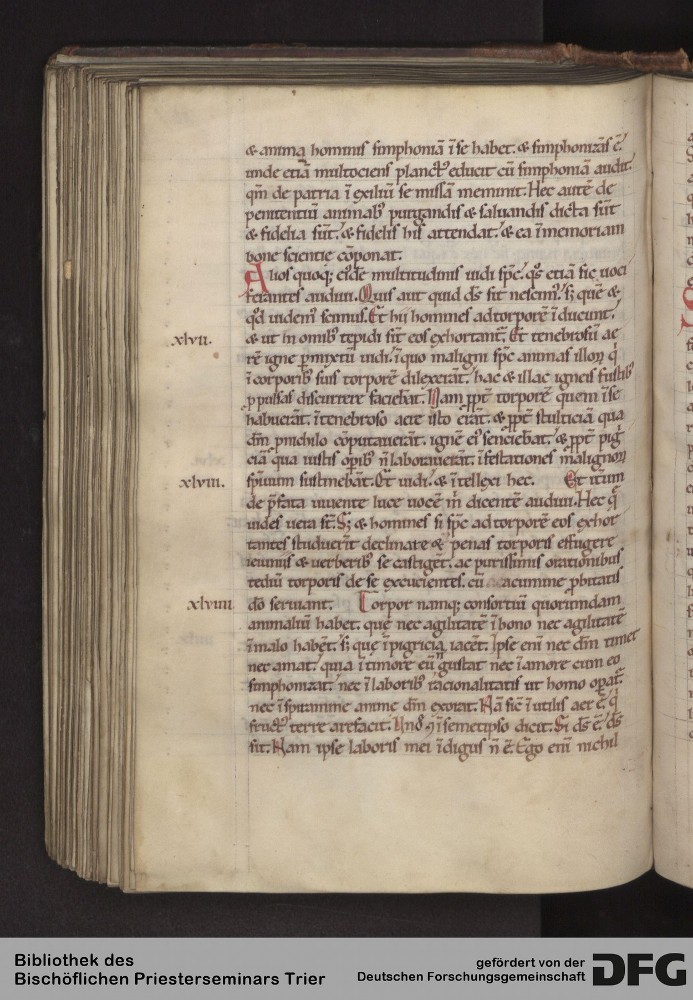 & anima hominis simphoniā ī se habet. & simphonizās ē.
unde etiā multociens planctꝰ educit cū simphoniā audit.
qm̄ de patria ī exiliū se missā meminit. Hec autē de
penitentiū animabꝰ purgandis & saluandis dicta sūt
& fidelia sūt. & fidelis his attendat. & ea ī memoriam
bone scientie cōponat.
Alios quoq; eiꝰdē multitudinis uidi sp̄c. qͦs etiā sic uoci
ferantes audiui. Quis aut quid d̄s sit nescimꝰ. s; quē &
qͦd uidemꝰ scimus. Et hii homines ad torporē īducunt.
xlvii.
& ut in omībꝰ tepidi sīt eos exhortant̄. Et tenebrosū ae
rē igne ꝑmixtū uidi. ī quo maligni sp̄c animas illoꝝ q̄
ī corporibꝰ suis torporē dilexerāt. hac & illac igneis fustibꝰ
ꝓpulsas discurrere faciebāt. Nam ꝓpt̄ torporē quem ī se
habuerāt. ī tenebroso aere isto erāt. & ꝓpt̄ stulticiā qua
dm̄ ꝓ nichilo cōputauerāt. ignē eiꝰ senciebāt. & ꝓpt̄ pig̓
ciā qua iustis opībꝰ n̄ laborauerāt. īfestationes malignoꝝ
xlviii.
sp̄iuum sustinebāt. Et uidi. & ītellexi hec. Et itīum
de p̄fata uiuente luce uocē m̄ dicentē audiui. Hec q̄
uides uera st̄. S; & homines si sp̄c ad torporē eos exhor
tantes studuerīt declinare & penas torporis effugere
ieiuniis & uerberibꝰ se castigēt. ac purissimis orationibus
tediū torporis de se excucientes. cū acumine ꝓbitatis
xlviiii
dō seruiant. Torpor namq; consortiū quorundam
animaliū habet. que nec agilitatē ī bono nec agilitatē
ī malo habēt. s; que ī pigricia iacēt. Ipse eni nec dm̄ timet
nec amat. quia ī timore eū n̄ gustat nec ī amore cum eo
simphonizat. nec ī laboribꝰ racionalitatis ut homo opat̄.
nec ī spiramine anime dm̄ exorat. Nā sic īutilis aer ē. q̄
fructꝰ terre arefacit. Unđ & ī semetipso dicit. Si d̄s ē. d̄s
sit. Nam ipse laboris mei īdigus n̄ ē. Ego eni nichil
Bibliothek des
Bischöflichen Priesterseminars Trier
gefördert von der
Deutschen Forschungsgemeinschaft
DFG